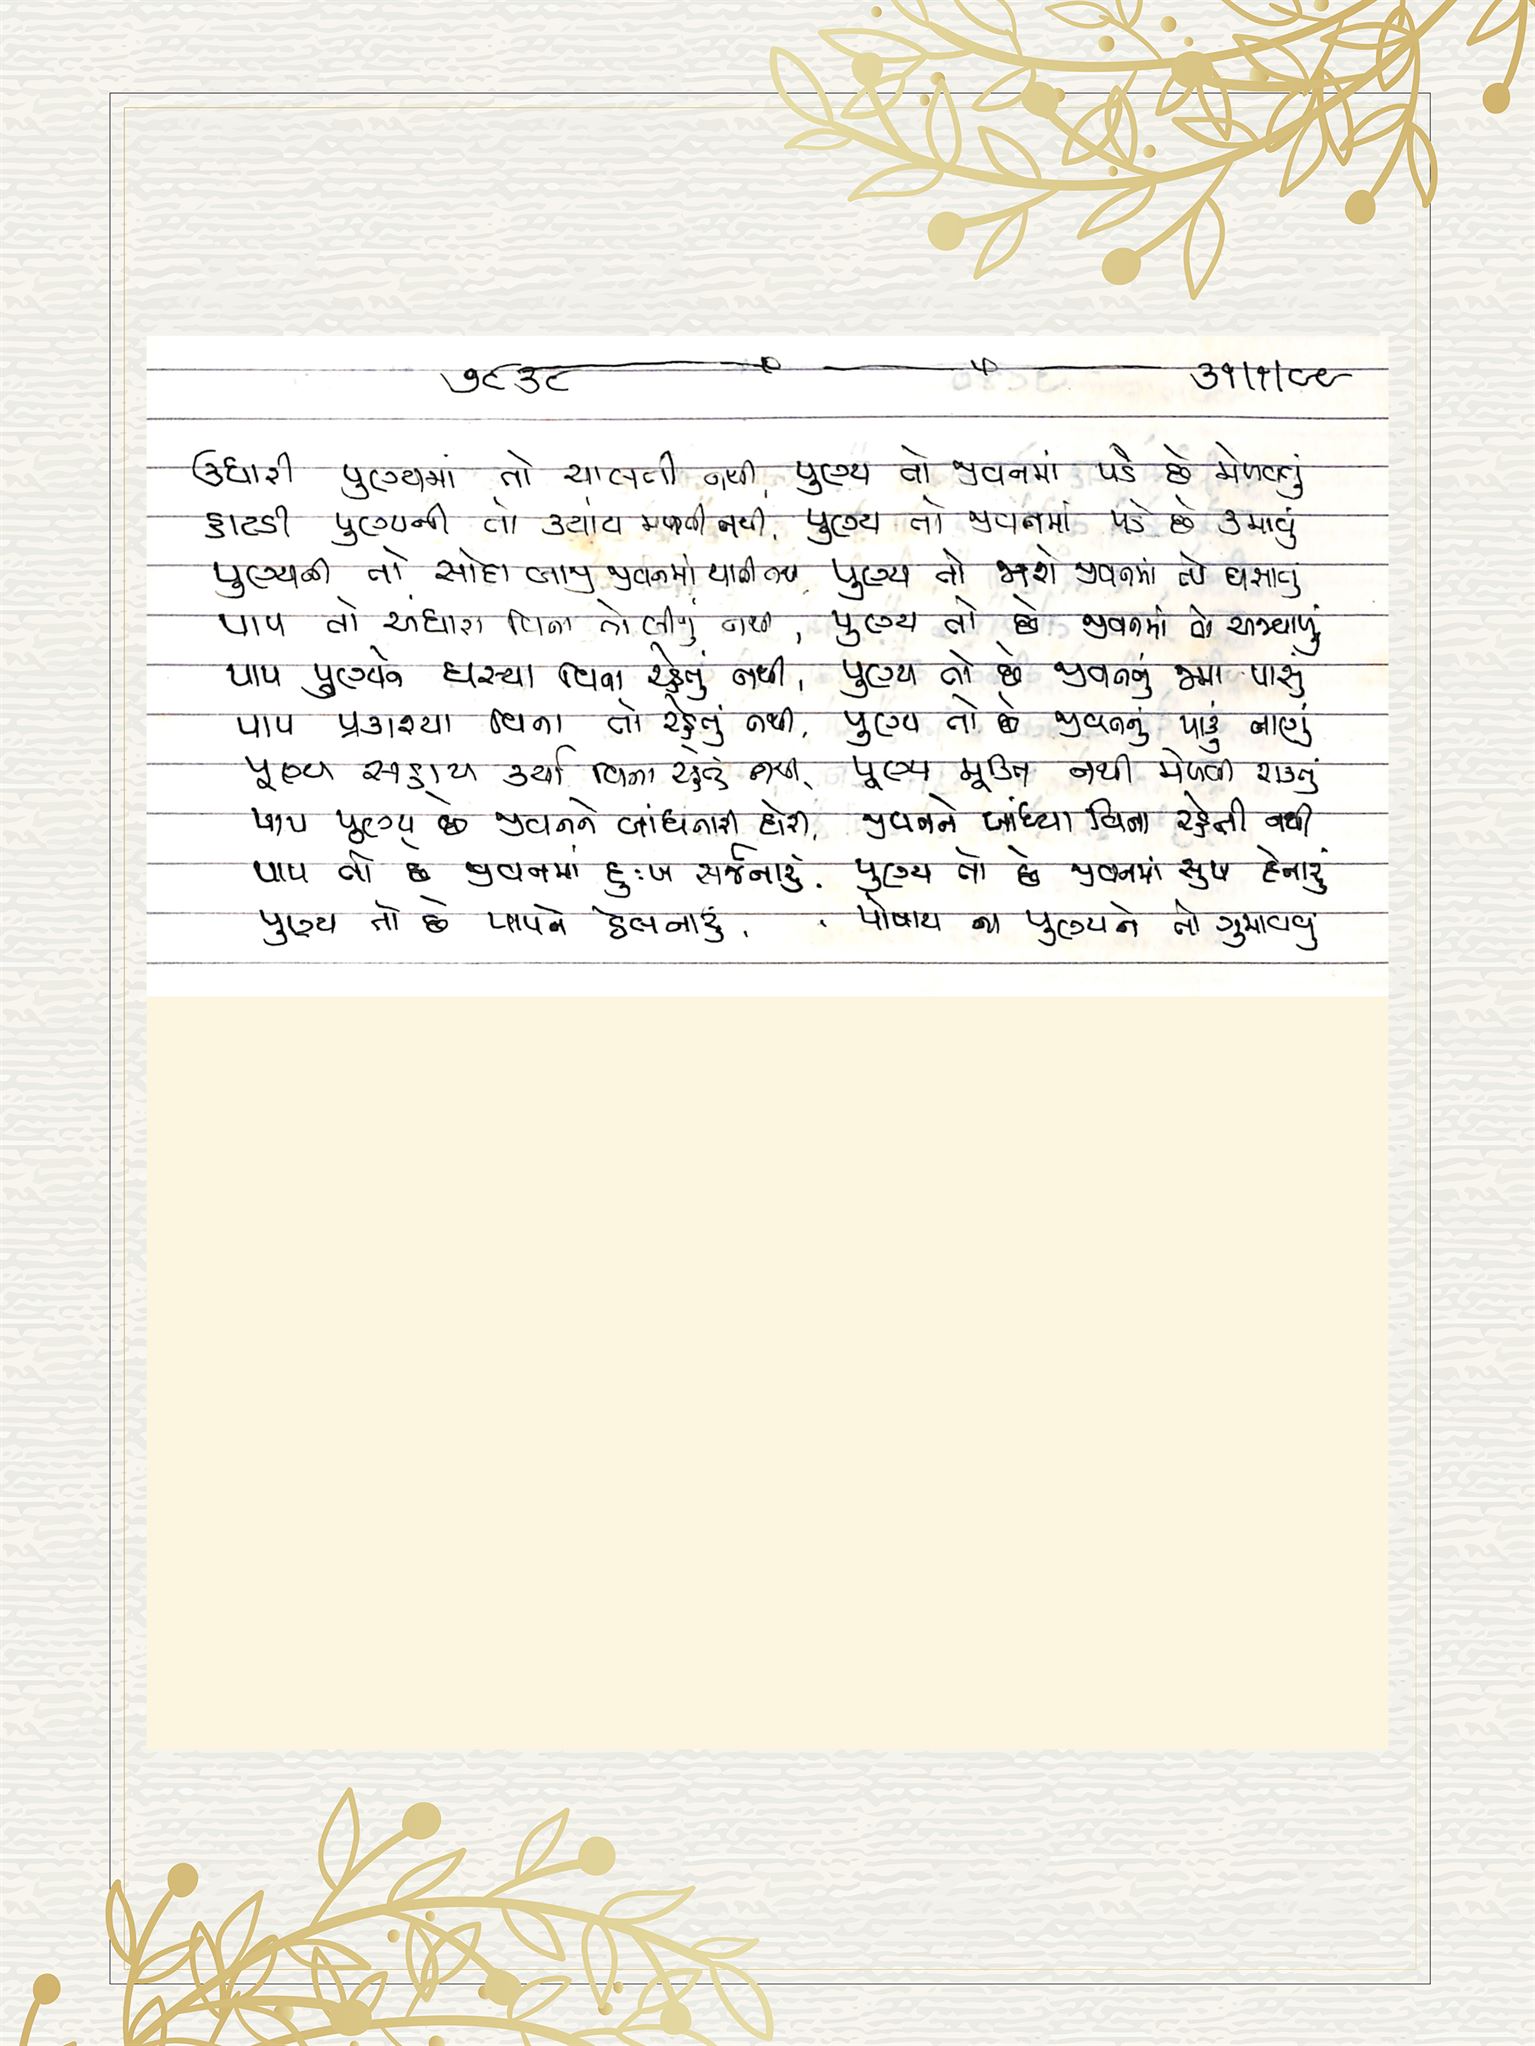 ૭૮૩૮ ૩૧/૧/૯૯
ઉધારી પુણ્યમાં તો ચાલતી નથી, પુણ્ય તો જીવનમાં પડે છે મેળવવું
હાટડી પુણ્યની તો ક્યાંય મળતી નથી, પુણ્ય તો જીવનમાં પડે છે કમાવું
પુણ્યની તો સોદાબાજી જીવનમાં થાતી નથી, પુણ્ય તો જીવનમાં તો
પાપ તો અંધારા વિના બીજું નથી, પુણ્ય તો છે જીવનમાં તો અજવાળું
પાપ પુણ્યને ઘસ્યા વિના રહેતું નથી, પુણ્ય તો છે જીવનનું જમા પાસું
પાપ પ્રકાશ્યા વિના તો રહેતું નથી, પુણ્ય તો છે જીવનનું પાકું નાણું
પૂણ્ય સહાય કર્યા વિના રહેતું નથી, પૂણ્ય મૂક્તિ નથી મેળવી શક્તું
પાપ પૂણ્ય છે જીવનને બાંધનારી દોરી, જીવનને બાંધ્યા વિના રહેતી નથી
પાપ તો છે જીવનમાં દુઃખ સર્જનારું. પુણ્ય તો છે જીવનમાં સુખ દેનારું
પુણ્ય તો છે પાપને ઠેલનારું. પોષાય ના પુણ્યને તો ગુમાવવું